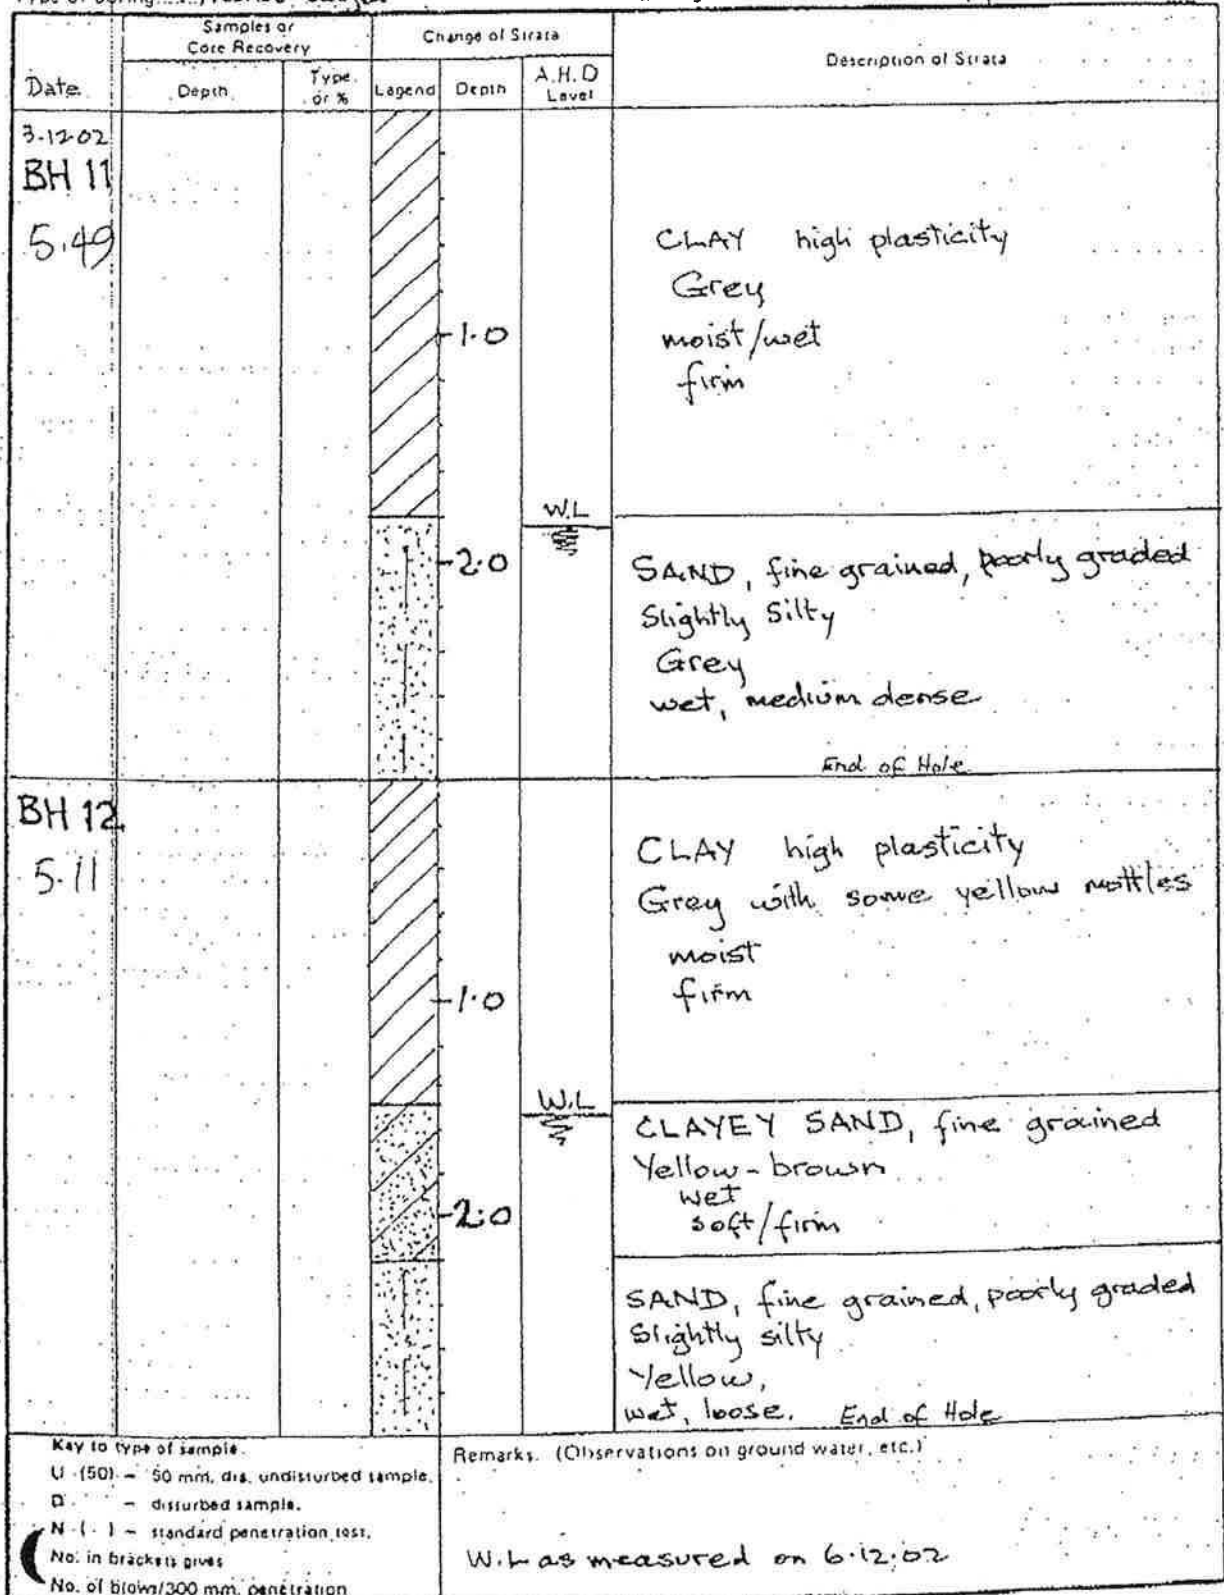 Samples or
Core Recovery
Change of Strata
Description of Strata
Date
Depth
Type
or %
Legend
Depth
A.H.D
Level
3.12.02
BH 11
5.49
1.0
CLAY high plasticity
Grey
moist/wet
firm
W.L
2.0
SAND, fine grained, poorly graded
Slightly Silty
Grey
wet, medium dense
End of Hole
BH 12
5.11
CLAY high plasticity
Grey with some yellow mottles
moist
firm
1.0
W.L
CLAYEY SAND, fine grained
Yellow-brown
wet
soft/firm
2.0
SAND, fine grained, poorly graded
Slightly silty
Yellow,
wet, loose. End of Hole
Key to type of sample.
U (50) – 50 mm. dia. undisturbed sample.
D – disturbed sample.
N ( ) – standard penetration test.
No. in brackets gives
No. of blows/300 mm. penetration
Remarks. (Observations on ground water, etc.)
W.L as measured on 6.12.02